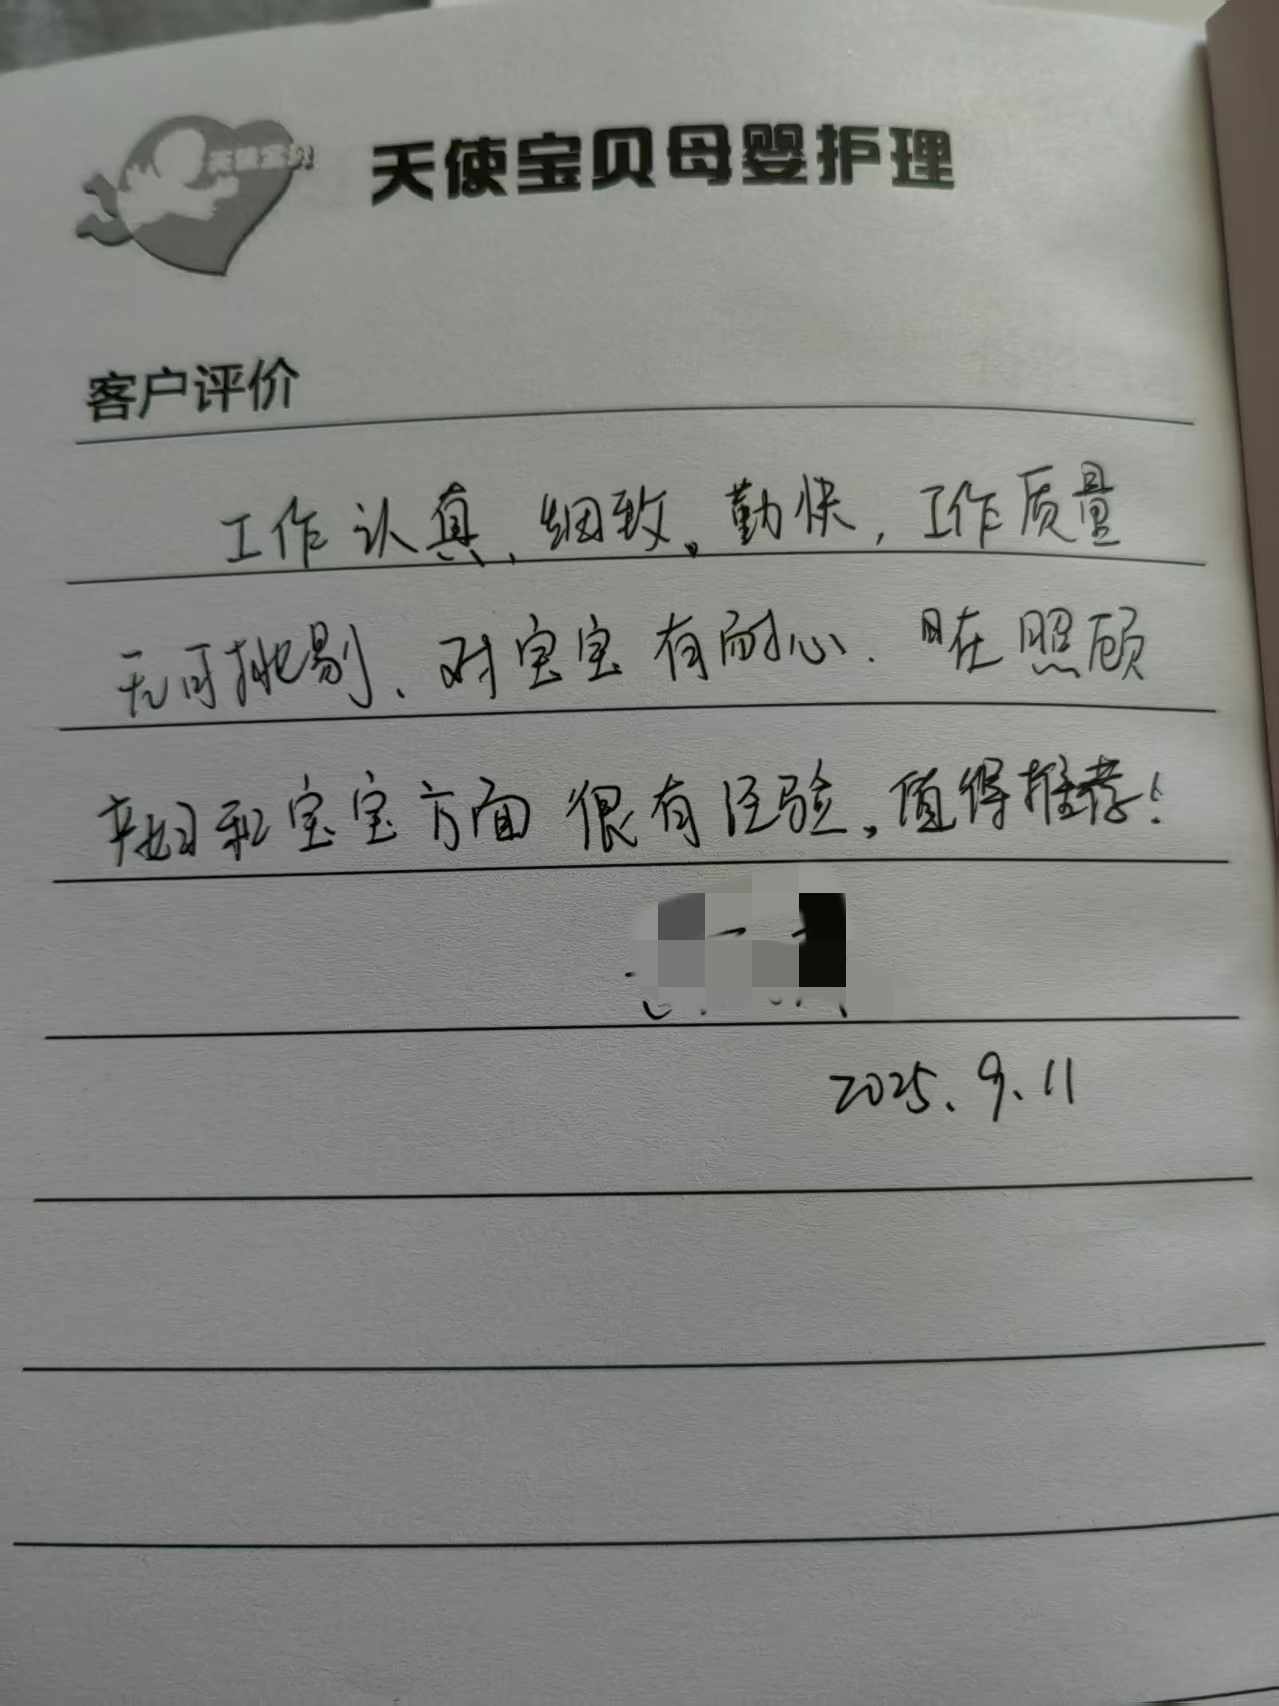 天使宝贝
天使宝贝母婴护理
客户评价
工作认真、细致。勤快，工作质量
无可挑剔、对宝宝有耐心.在照顾
和宝宝方面很有经验。值得推荐！
2025.9.11